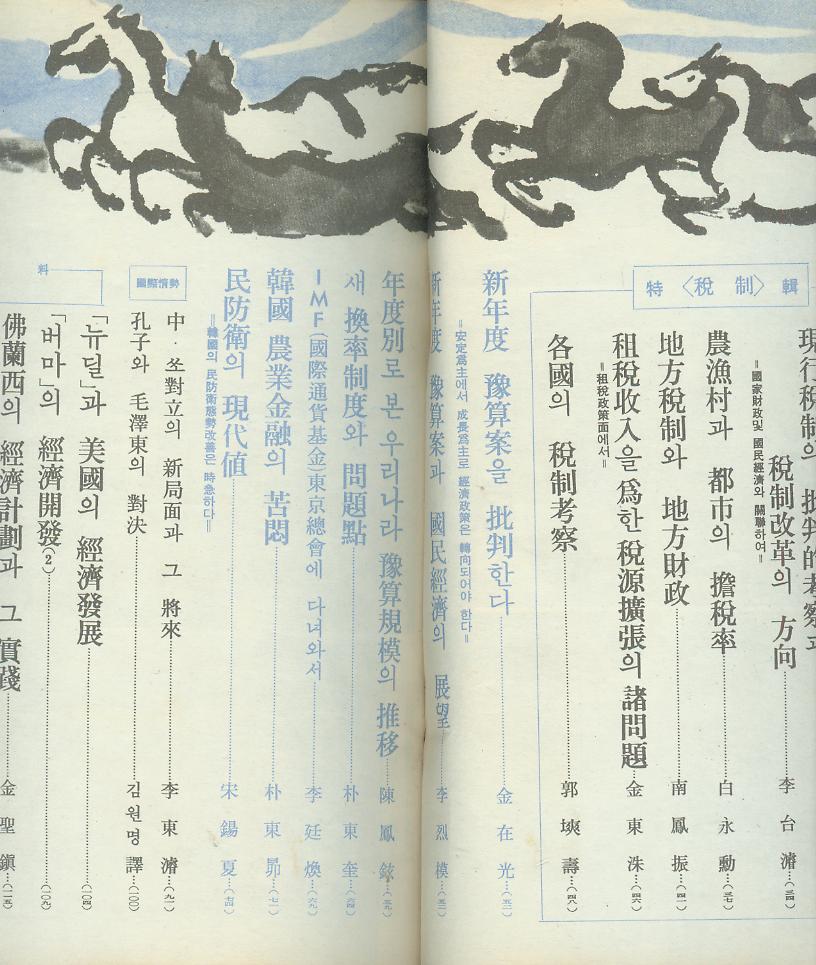 特 〈稅 制〉 輯
現行稅制의 批判的 考察과
稅制改革의 方向……李台濬…(三四)
=國家財政및 國民經濟와 關聯하여=
農漁村과 都市의 擔稅率……白永勳…(三七)
地方稅制와 地方財政……南鳳振…(四一)
租稅收入을 爲한 稅源擴張의 諸問題…金東洙…(四六)
=租稅政策面에서=
各國의 稅制考察……郭埉壽…(四八)
新年度 豫算案을 批判한다……金在光…(五一)
=安定爲主에서 成長爲主로 經濟政策은 轉向되어야 한다=
新年度 豫算案과 國民經濟의 展望……李烈模
年度別로 본 우리나라 豫算規模의 推移…陳鳳鉉…(五九)
새 換率制度와 問題點……朴東奎…(六四)
IMF(國際通貨基金)東京總會에 다녀와서……李廷煥…(六九)
韓國 農業金融의 苦悶……朴東昴…(七一)
民防衛의 現代値……宋錫夏…(七四)
=韓國의 民防衛態勢改善은 時急하다=
國際情勢
中·쏘對立의 新局面과 그 將來……李東濬…(九一)
孔子와 毛澤東의 對決……김원명 譯…(一〇〇)
料
「뉴딜」과 美國의 經濟發展……(一〇四)
「버마」의 經濟開發(2)……(一〇九)
佛蘭西의 經濟計劃과 그 實踐……金聖鎭…(一一五)